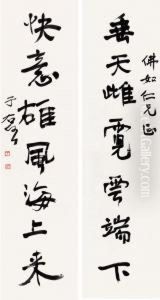 垂天雌霓雲端下
佛如仁兄正
快意雄風海上来
于右任